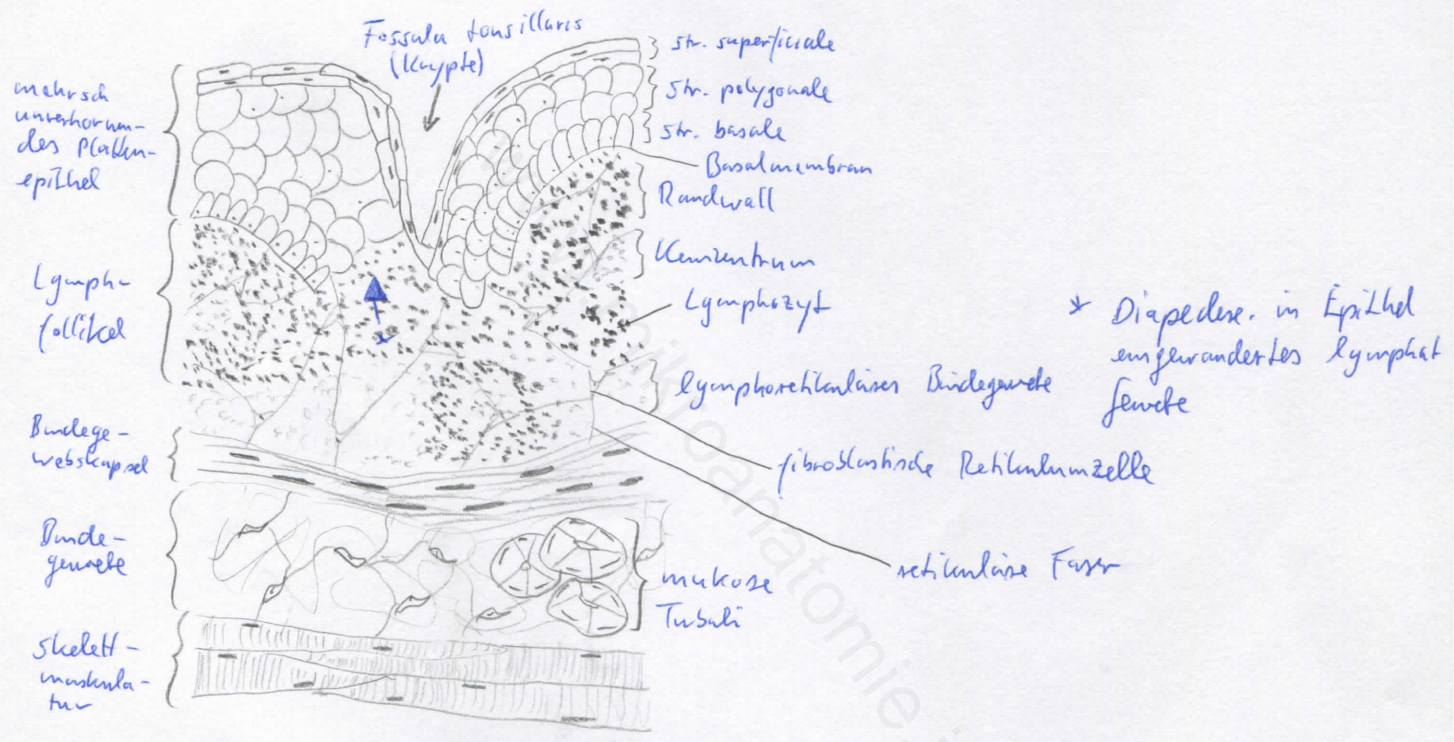 Fossula tonsillaris
(Krypte)
mehrsch
unverhornen-
des Platten-
epithel
Lymph-
follikel
Bindege-
webskapsel
Binde-
gewebe
Skelett-
muskula-
tur
str. superficiale
str. polygonale
str. basale
Basalmembran
Randwall
Keimzentrum
Lymphozyt
lymphoretikuläres Bindegewebe
fibroblastische Retikulumzelle
retikuläre Faser
muköse
Tubuli
* Diapedese. in Epithel
eingewandertes lymphat
Gewebe
mikroanatomie